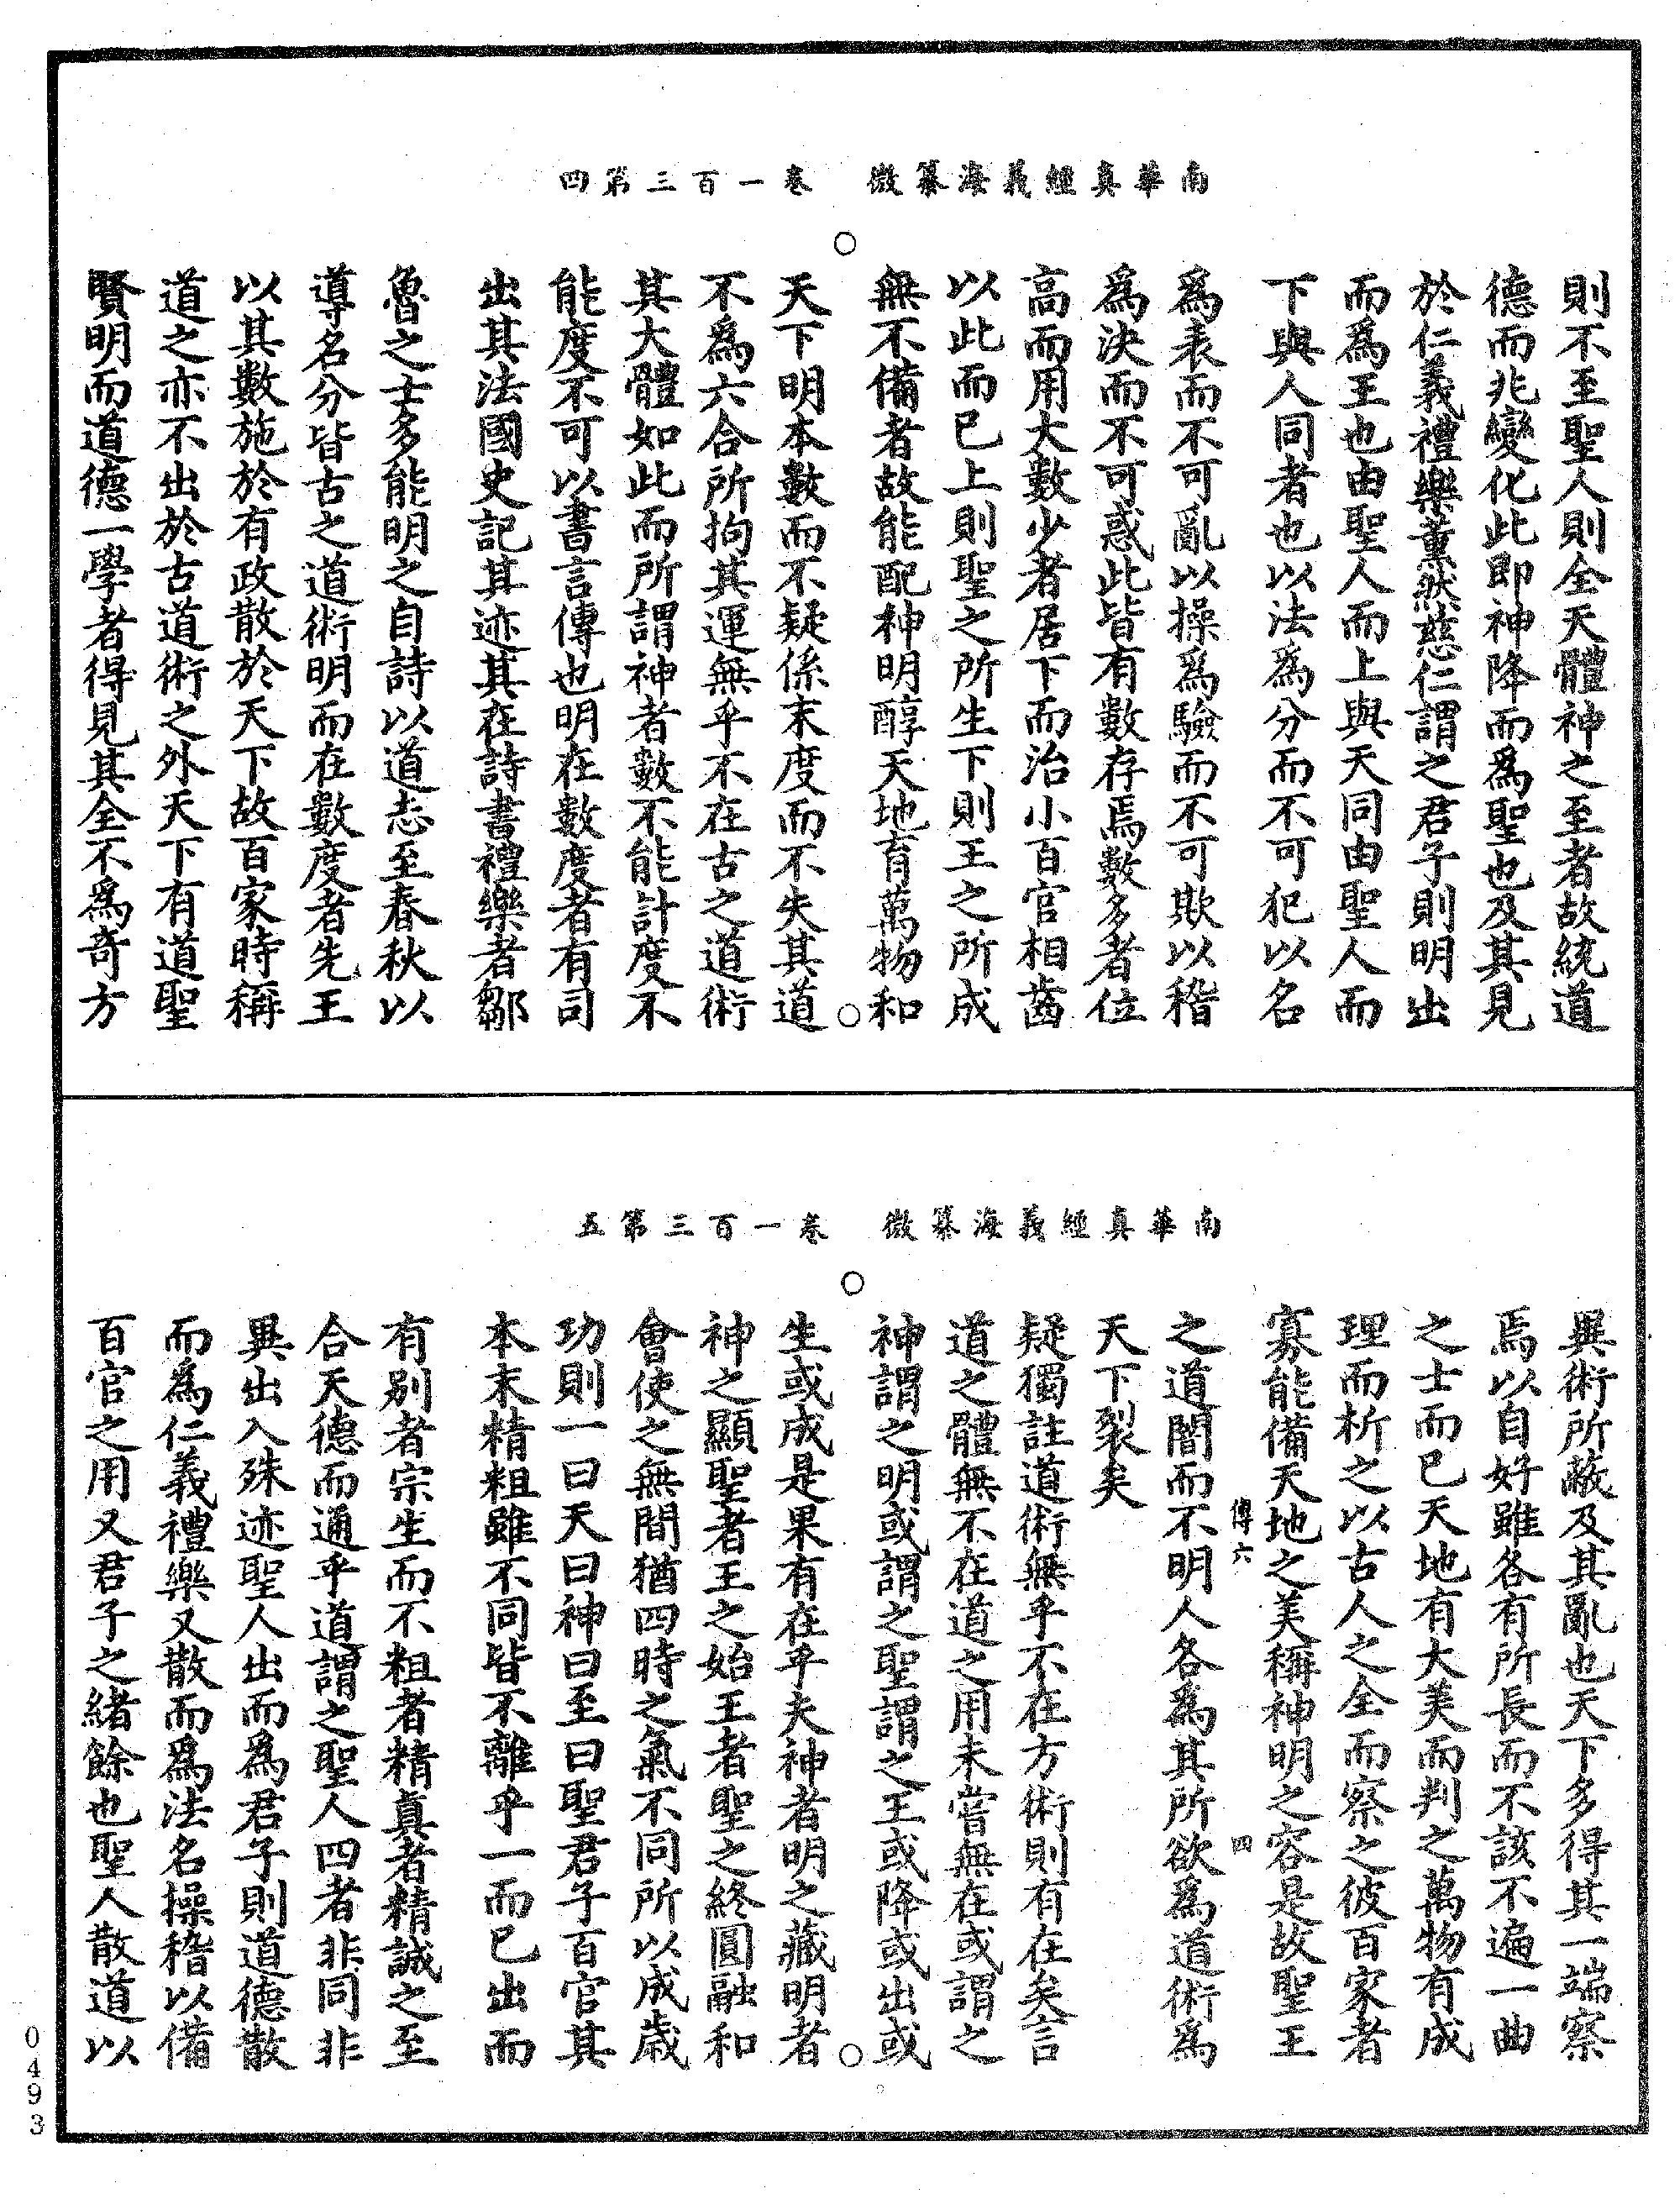 南華真經義海纂微　卷一百三第四
則不至聖人則全天體神之至者故統道
德而兆變化此即神降而為聖也及其見
於仁義禮樂薰然慈仁謂之君子則明出
而為王也由聖人而上與天同由聖人而
下與人同者也以法為分而不可犯以名
為表而不可亂以操為驗而不可欺以稽
為決而不可惑此皆有數存焉數多者位
高而用大數少者居下而治小百官相齒
以此而已上則聖之所生下則王之所成
無不備者故能配神明醇天地育萬物和
天下明本數而不疑係末度而不失其道
不為六合所拘其運無乎不在古之道術
其大體如此而所謂神者數不能計度不
能度不可以書言傳也明在數度者有司
出其法國史記其迹其在詩書禮樂者鄒
魯之士多能明之自詩以道志至春秋以
導名分皆古之道術明而在數度者先王
以其數施於有政散於天下故百家時稱
道之亦不出於古道術之外天下有道聖
賢明而道德一學者得見其全不為奇方
南華真經義海纂微　卷一百三第五
異術所蔽及其亂也天下多得其一端察
焉以自好雖各有所長而不該不遍一曲
之士而已天地有大美而判之萬物有成
理而析之以古人之全而察之彼百家者
寡能備天地之美稱神明之容是故聖王
傳六　四
之道闇而不明人各為其所欲為道術為
天下裂矣
疑獨註道術無乎不在方術則有在矣言
道之體無不在道之用未嘗無在或謂之
神謂之明或謂之聖謂之王或降或出或
生或成是果有在乎夫神者明之藏明者
神之顯聖者王之始王者聖之終圓融和
會使之無間猶四時之氣不同所以成歲
功則一曰天曰神曰至曰聖君子百官其
本末精粗雖不同皆不離乎一而已出而
有別者宗生而不粗者精真者精誠之至
合天德而通乎道謂之聖人四者非同非
異出入殊迹聖人出而為君子則道德散
而為仁義禮樂又散而為法名操稽以備
百官之用又君子之緒餘也聖人散道以
0493